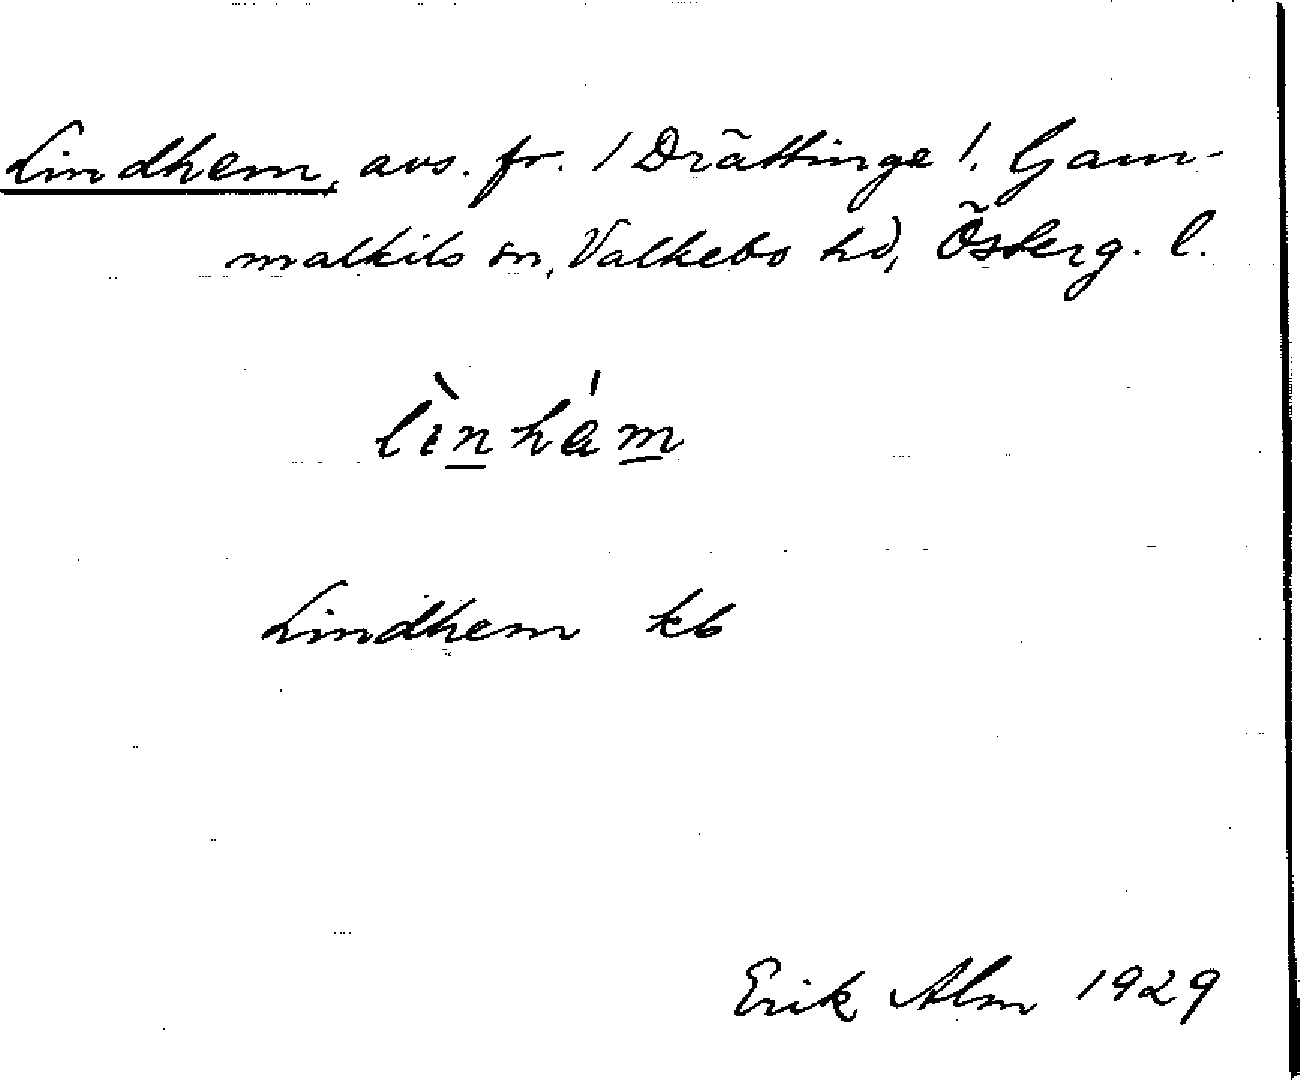 Lindhem, avs. fr. / Drättinge /. Gam-
malkils sn, Valkebo hd, Österg. l.
lìnhá̤m
Lindhem kb
Erik Alm 1929